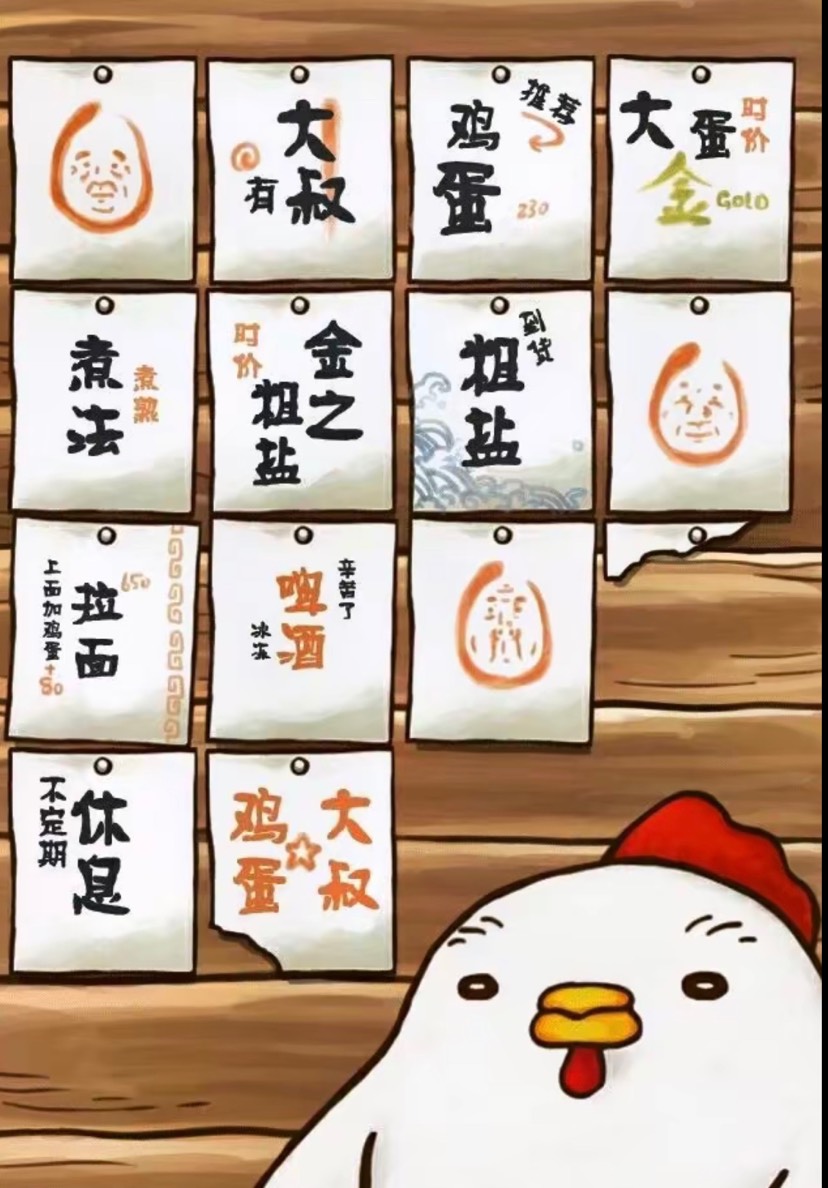 大叔
有
推荐
鸡蛋
230
大蛋
时价
金
GOLD
煮法
煮熟
金之
粗盐
时价
到货
粗盐
拉面
650
上面加鸡蛋+80
辛苦了
啤酒
冰冻
休息
不定期
大叔
鸡蛋